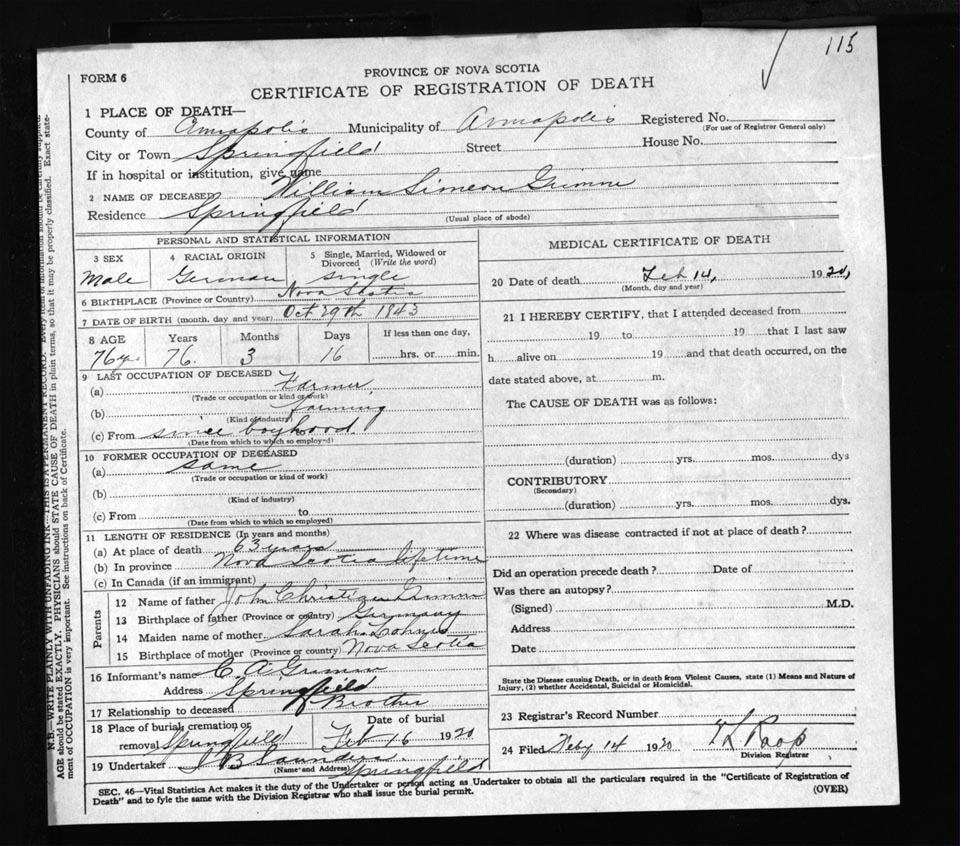 115
FORM 6
PROVINCE OF NOVA SCOTIA
CERTIFICATE OF REGISTRATION OF DEATH
1 PLACE OF DEATH—
County of Annapolis Municipality of Annapolis Registered No.
(For use of Registrar General only)
City or Town Springfield Street House No.
If in hospital or institution, give name
2 NAME OF DECEASED William Simeon Grimm
Residence Springfield
(Usual place of abode)
PERSONAL AND STATISTICAL INFORMATION
3 SEX Male
4 RACIAL ORIGIN German
5 Single, Married, Widowed or Divorced (Write the word) Single
6 BIRTHPLACE (Province or Country) Nova Scotia
7 DATE OF BIRTH (month, day and year) Oct 29th 1843
8 AGE Years Months Days If less than one day,
76 yrs 76 3 16 hrs. or min.
9 LAST OCCUPATION OF DECEASED
(a) Farmer
(Trade or occupation or kind of work)
(b) farming
(Kind of industry)
(c) From since boyhood to
(Date from which to which so employed)
10 FORMER OCCUPATION OF DECEASED
(a) same
(Trade or occupation or kind of work)
(b)
(Kind of industry)
(c) From to
(Date from which to which so employed)
11 LENGTH OF RESIDENCE (In years and months)
(a) At place of death 63 years
(b) In province Nova Scotia lifetime
(c) In Canada (if an immigrant)
Parents
12 Name of father John Christian Grimm
13 Birthplace of father (Province or country) Germany
14 Maiden name of mother Sarah
15 Birthplace of mother (Province or country) Nova Scotia
16 Informant's name C. A Grimm
Address Springfield
17 Relationship to deceased Brother
18 Place of burial, cremation or removal Springfield Date of burial Feb 16 1920
19 Undertaker J B Saunders
(Name and Address) Springfield
MEDICAL CERTIFICATE OF DEATH
20 Date of death Feb 14, 1920,
(Month, day and year)
21 I HEREBY CERTIFY, that I attended deceased from
19 to 19 that I last saw
h alive on 19 and that death occurred, on the
date stated above, at m.
The CAUSE OF DEATH was as follows:
(duration) yrs. mos. dys
CONTRIBUTORY
(Secondary)
(duration) yrs. mos. dys.
22 Where was disease contracted if not at place of death?
Did an operation precede death? Date of
Was there an autopsy?
(Signed) M.D.
Address
Date
State the Disease causing Death, or in death from Violent Causes, state (1) Means and Nature of
Injury, (2) whether Accidental, Suicidal or Homicidal.
23 Registrar's Record Number
24 Filed Feby 14 1920 L Roop
Division Registrar
SEC. 46—Vital Statistics Act makes it the duty of the Undertaker or person acting as Undertaker to obtain all the particulars required in the "Certificate of Registration of
Death" and to fyle the same with the Division Registrar who shall issue the burial permit.
(OVER)
N.B.—WRITE PLAINLY WITH UNFADING INK—THIS IS A PERMANENT RECORD. Every item of information should be carefully supplied.
AGE should be stated EXACTLY. PHYSICIANS should STATE CAUSE OF DEATH in plain terms, so that it may be properly classified. Exact state-
ment of OCCUPATION is very important. See instructions on back of Certificate.